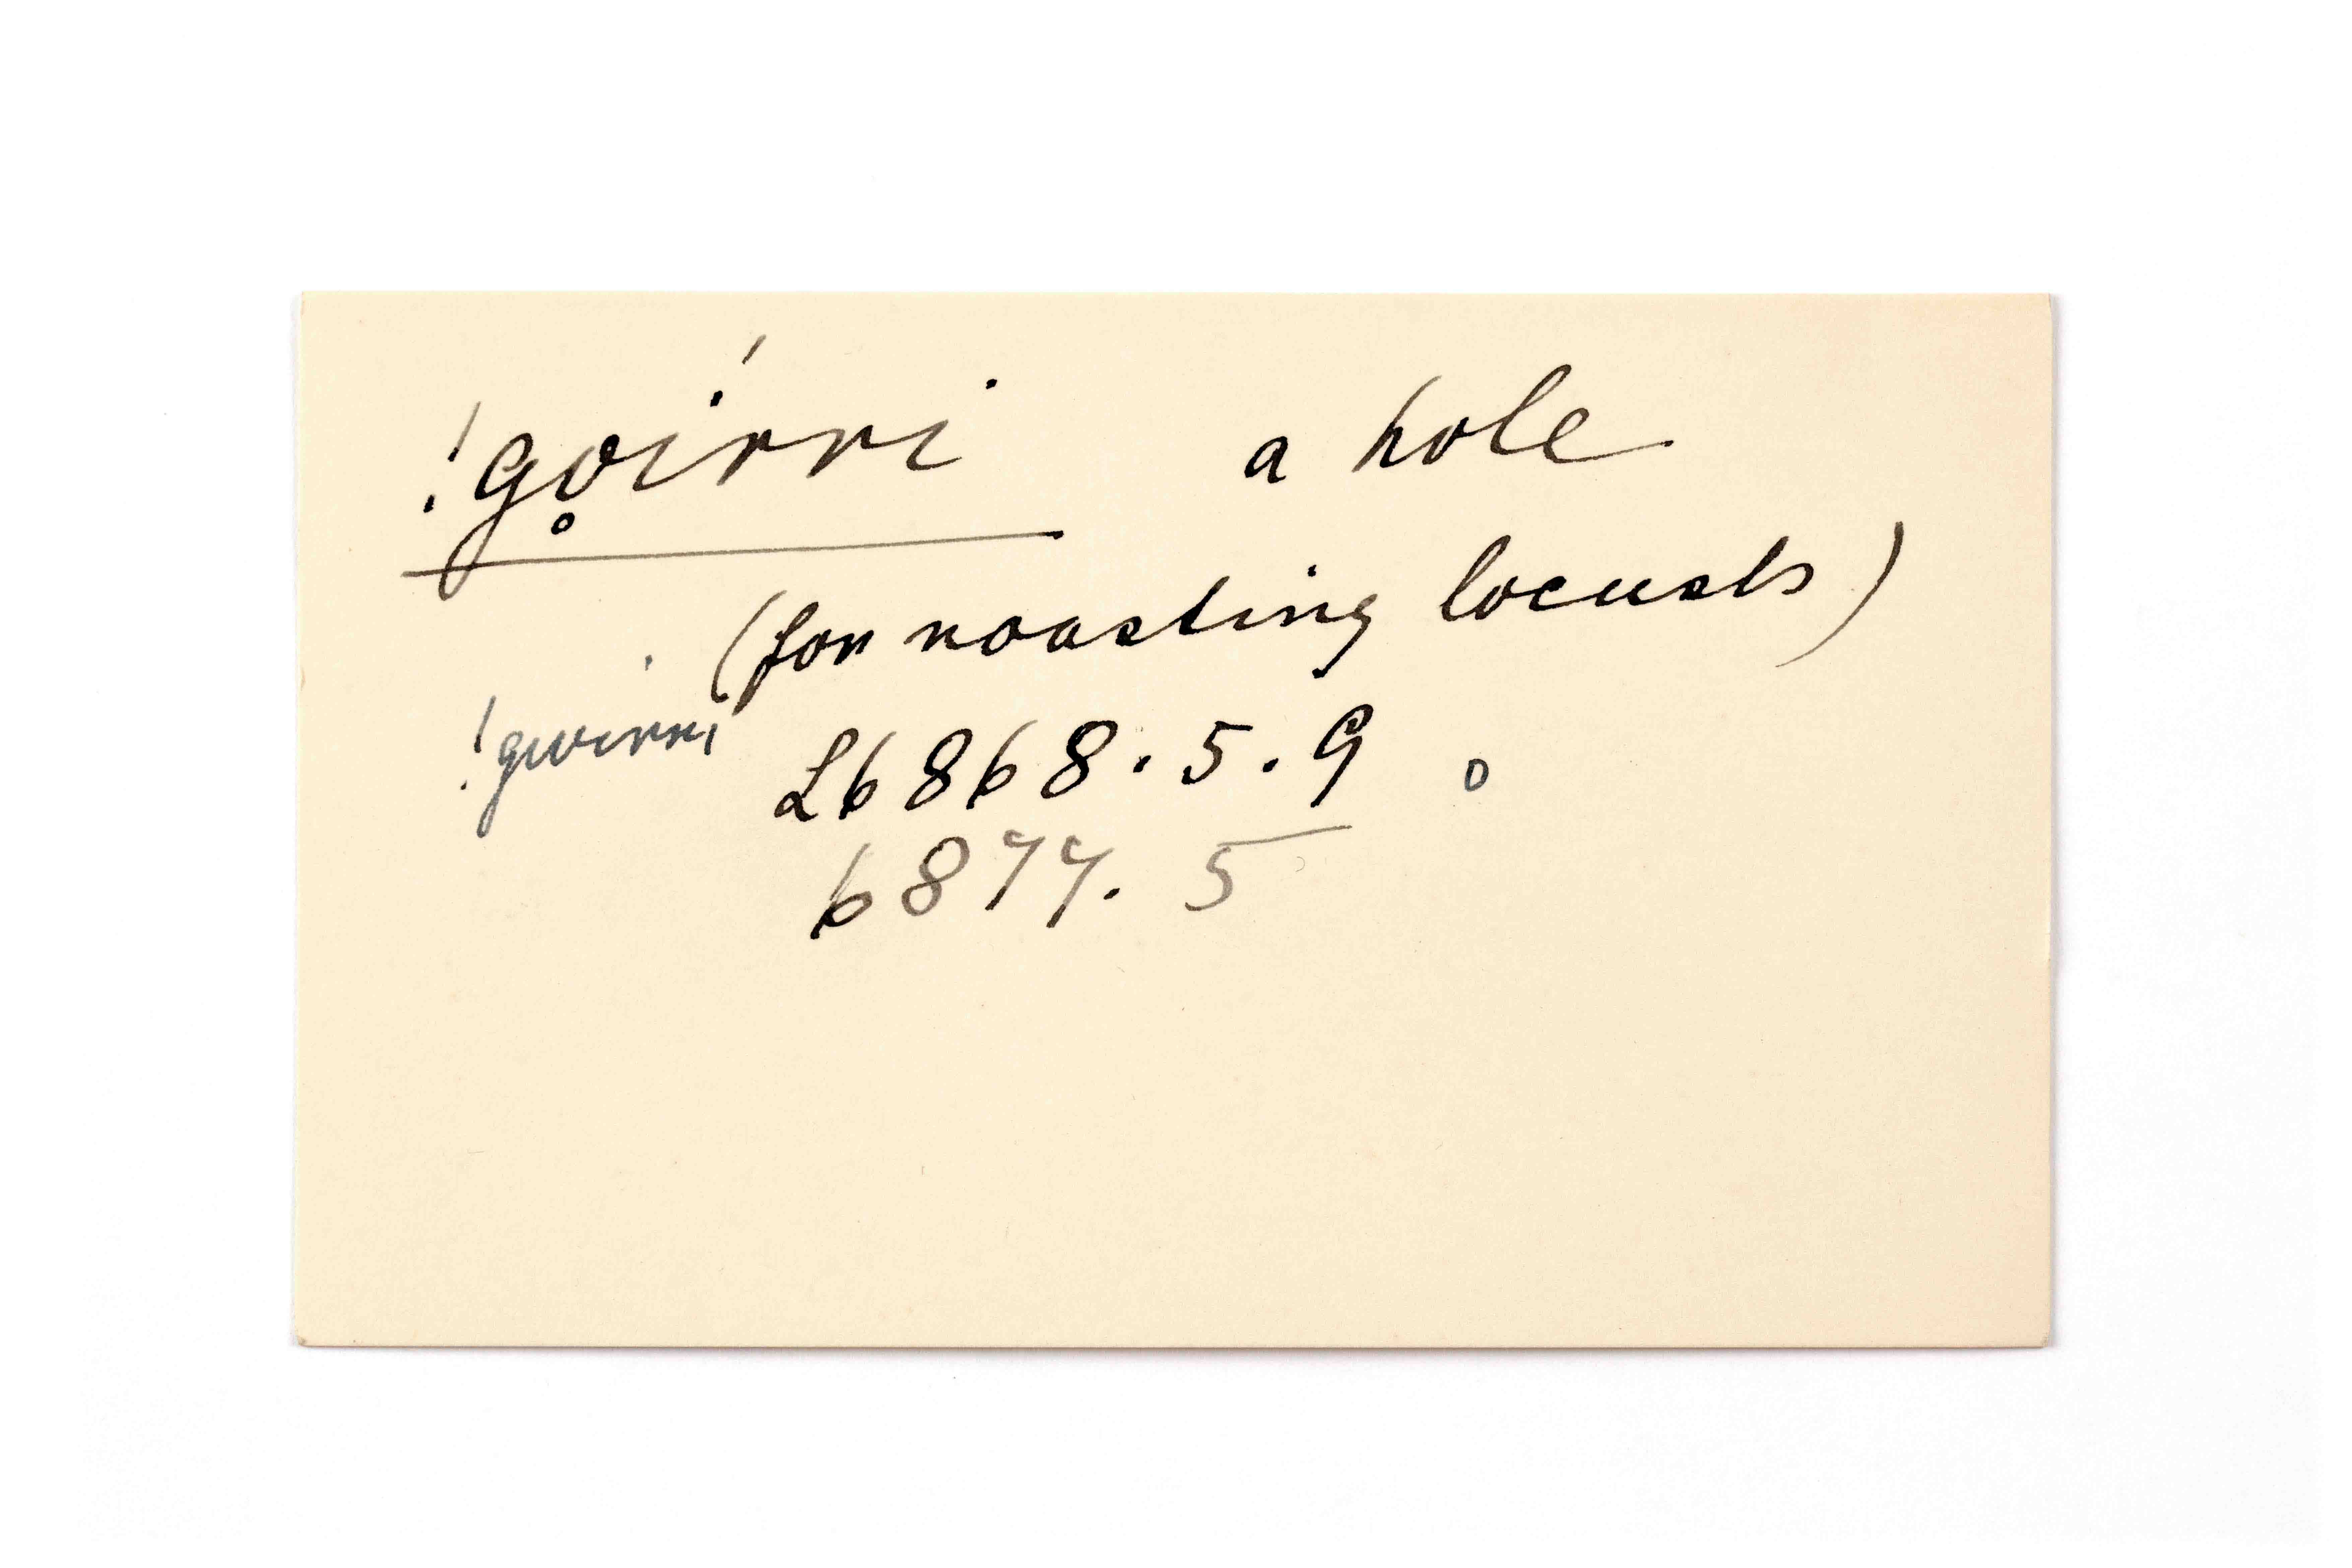 !go̥írri a hole
(for roasting locusts)
!gwirri L6868.5.9 o
6877. 5